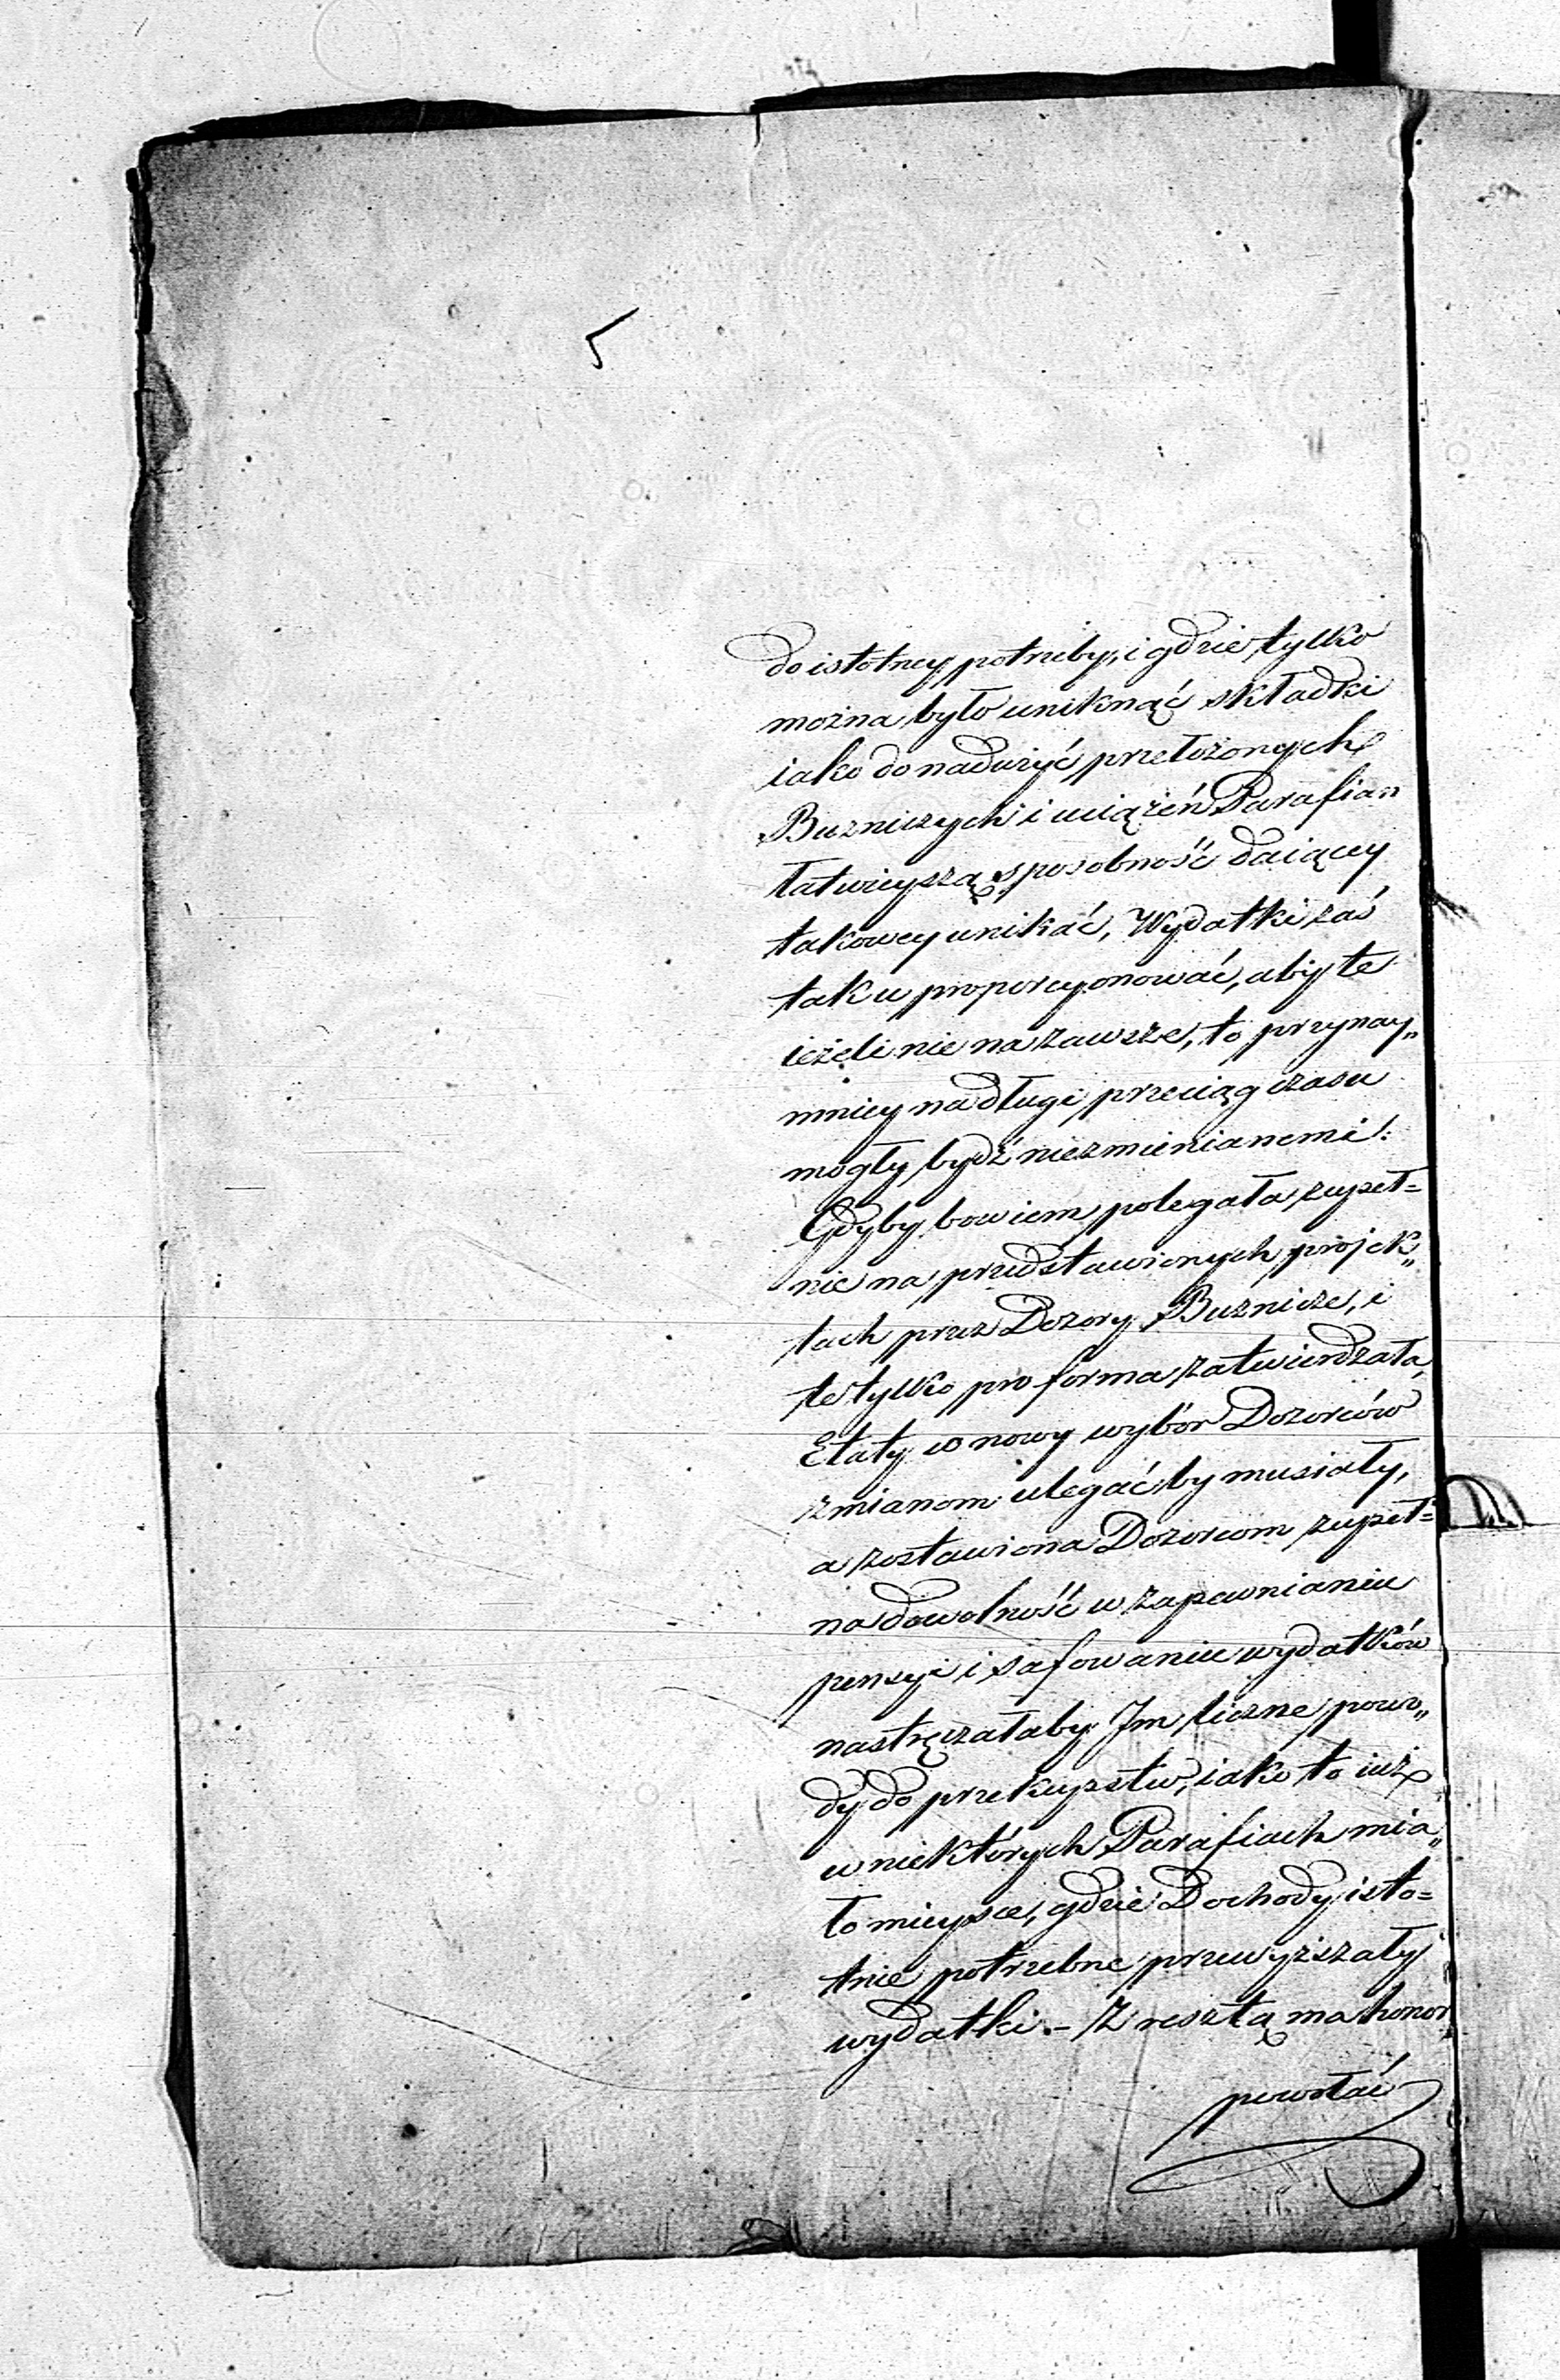 do istotney potrzeby, i gdzie tylko
można było uniknąć składki
iako do nadużyć przełożonych
Bużniczych i uciążeń Parafian
łatwieyszą sposobność daiącey
takowey unikać, Wydatki zaś
tak uproporcyonować, aby te
ieżeli nie na zawsze, to przynay„
mniey na długi przeciąg czasu
mogły bydź niezmienianemi.
Gdyby bowiem polegała zupeł=
nie na przedstawionych projek„
tach przez Dozory Bużnicze, i
te tylko pro forma zatwierdzała,
Etaty co nowy wybór Dozorców
zmianom ulegać by musiały,
a zostawiona Dozorcom zupeł=
na dowolność w zapewnianiu
pensyi i szafowaniu wydatków
nastręczałaby Im liczne powo„
dy do przekupstw, iako to iuż
w niektórych Parafiach mia„
ło mieysce, gdzie Dochody isto=
tnie potrzebne przewyższały
wydatki. – Z resztą ma honor
powołać